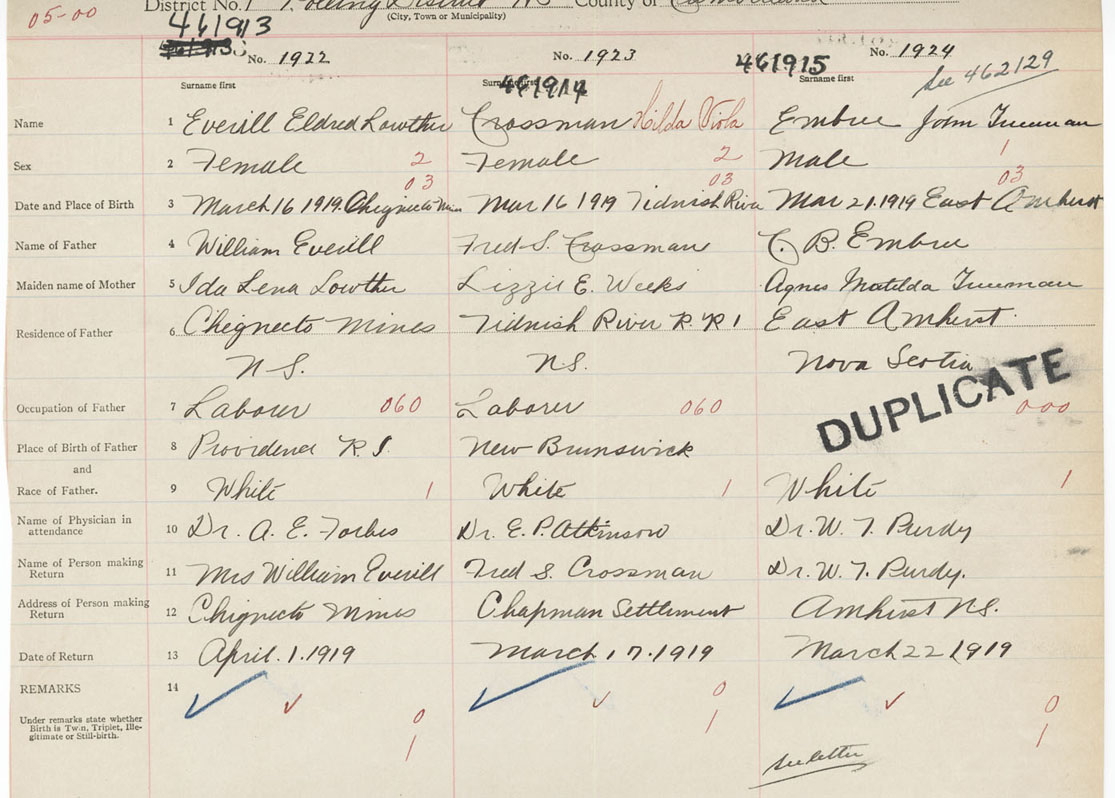 05-00
District No. 1 Polling District County of Cumberland
(City, Town or Municipality)
461913
No. 1922 No. 1923 461915 No. 1924
See 462129
Surname first Surname first 461914 Surname first
Name 1 Everill Eldred Lowther Crossman Hilda Viola Embree John Trueman
Sex 2 Female 2 Female 2 Male 1
03 03 03
Date and Place of Birth 3 March 16 1919. Chignecto Mines Mar 16 1919 Tidnish River Mar 21.1919 East Amherst
Name of Father 4 William Everill Fred S. Crossman C. B. Embree
Maiden name of Mother 5 Ida Lena Lowther Lizzie E. Weeks Agnes Matilda Trueman
Residence of Father 6 Chignecto Mines Tidnish River R. R 1 East Amherst.
N S. N S. Nova Scotia
DUPLICATE
Occupation of Father 7 Laborer 060 Laborer 060 000
Place of Birth of Father 8 Providence R. I. New Brunswick
and
Race of Father. 9 White 1 White 1 White 1
Name of Physician in attendance 10 Dr. A. E. Forbes Dr. E. P. Atkinson Dr. W. T. Purdy
Name of Person making Return 11 Mrs William Everill Fred S. Crossman Dr. W. T. Purdy.
Address of Person making Return 12 Chignecto Mines Chapman Settlement Amherst N.S.
Date of Return 13 April. 1. 1919 March 17. 1919 March 22 1919
REMARKS 14
Under remarks state whether
Birth is Twin, Triplet, Ille-
gitimate or Still-birth.
0 0 0
1 1 1
see letter